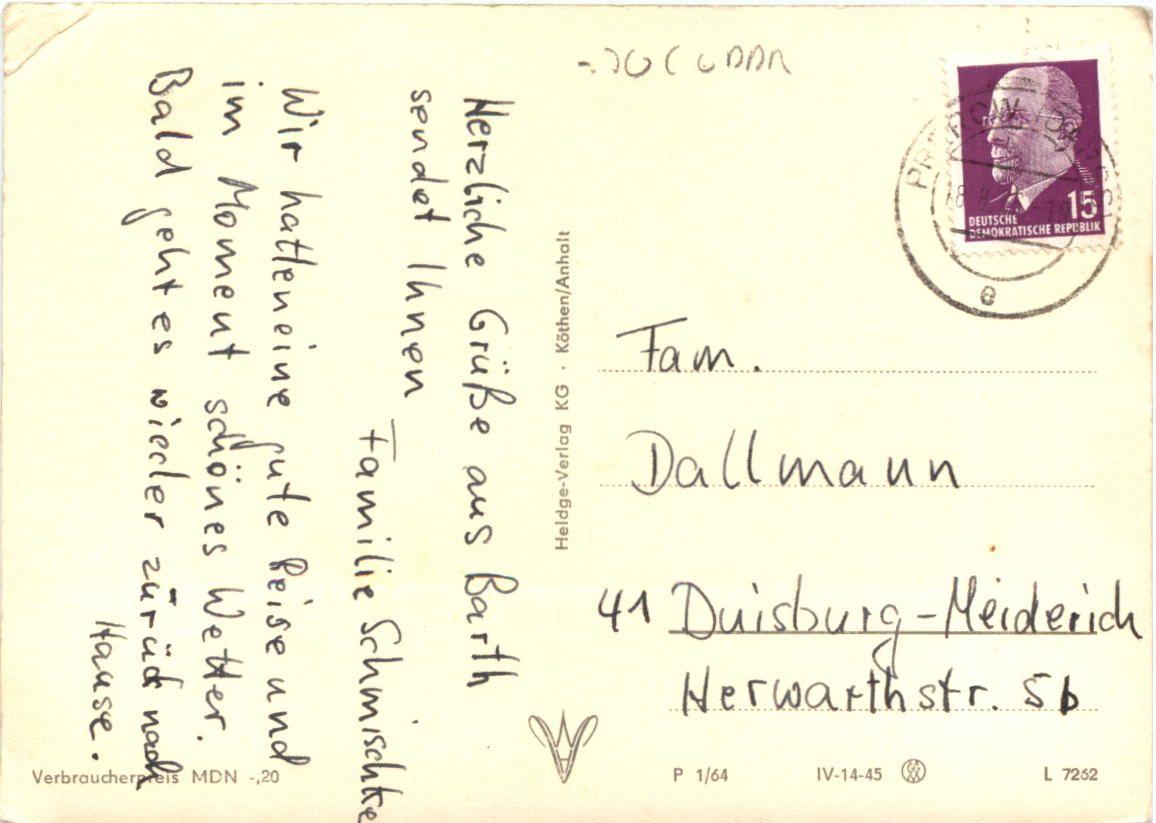 Herzliche Grüße aus Barth
sendet Ihnen
Familie Schmischke
Wir hatten eine gute Reise und
im Moment schönes Wetter.
Bald geht es wieder zurück nach
Hause.
Heldge-Verlag KG · Köthen/Anhalt
DDR
15
DEUTSCHE
DEMOKRATISCHE REPUBLIK
e
Fam.
Dallmann
41 Duisburg-Meiderich
Herwarthstr. 5b
Verbraucherpreis MDN -,20
P 1/64
IV-14-45
L 7262